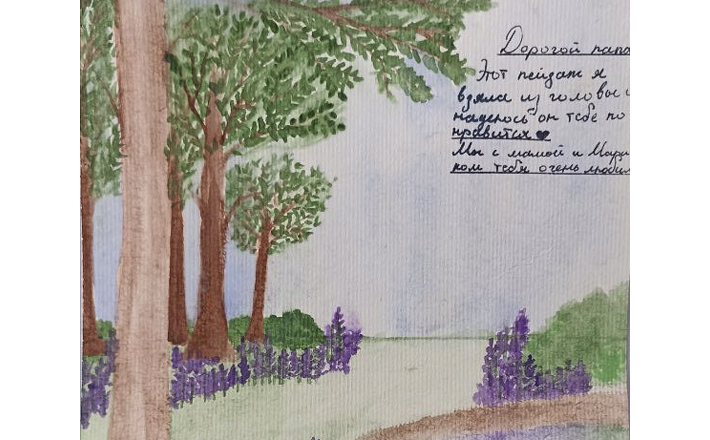 Дорогой пап
Этот пейзаж я
взяла из головы и
надеюсь он тебе по
нравится
Мы с мамой и Мари
ком тебя очень любим